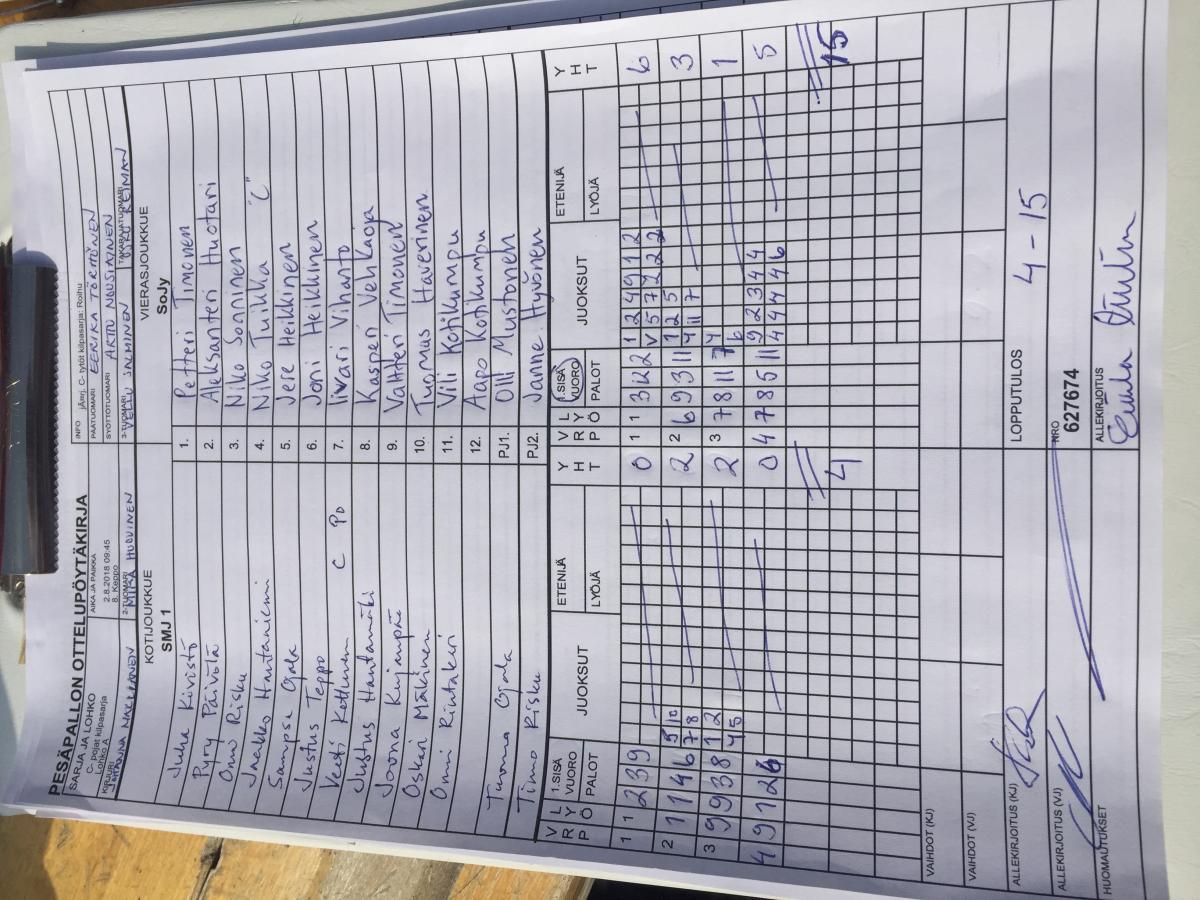 PESÄPALLON OTTELUPÖYTÄKIRJA
SARJA JA LOHKO
C- pojat kilpasarja
Lohko A
AIKA JA PAIKKA
2.8.2018 09:45
8. Keppo
INFO jÄmrj. C- tytöt kilpasarja: Roihu
PÄÄTUOMARI EERIKA TÖRMÖNEN
SYÖTTÖTUOMARI ARTTU NOUSIAINEN
KIRJURI
2-TUOMARI MIKA HUOVINEN
3-TUOMARI VELLU JALMINEN
TAKARAJATUOMARI
KOTIJOUKKUE
SMJ 1
VIERASJOUKKUE
SoJy
Juha Kivistö 1. Petteri Timonen
Pyry Päivölä 2. Aleksanteri Huotari
Onni Risku 3. Niko Sorninen
Jaakko Hautaniemi 4. Niko Tuikka "C"
Sampsa Ojala 5. Jere Heikkinen
Justus Teppo 6. Joni Heikkinen
Veeti Kottunen C Po 7. Iivari Vihanto
Justus Hautamäki 8. Kasperi Vehkaoja
Joona Kujanpää 9. Valtteri Timonen
Oskari Mäkinen 10. Tuomas Haverinen
Onni Rintakiri 11. Vili Kotikumpu
12. Aapo Kotikumpu
Tuomo Ojala PJ1. Olli Mustonen
Timo Risku PJ2. Janne Hyvönen
V R P L Y Ö 1.SISÄ VUORO PALOT JUOKSUT ETENIJÄ LYÖJÄ Y H T V R P L Y Ö 1.SISÄ VUORO PALOT JUOKSUT ETENIJÄ LYÖJÄ Y H T
1 1 2 3 9 0 1 1 3 2 1 2 4 9 1 2 6
V 5 7 2 2 2
2 1 1 4 6 5 10 2 2 6 9 3 11 1 2 5 3
7 8 4 11 7
3 9 9 3 8 1 2 2 3 7 8 11 7 4 1
4 5 6
4 9 1 2 6 0 4 7 8 5 11 9 2 3 4 4 5
4 4 4 4 6
4 15
VAIHDOT (KJ)
VAIHDOT (VJ)
ALLEKIRJOITUS (KJ)
LOPPUTULOS 4 - 15
ALLEKIRJOITUS (VJ)
NRO
627674
HUOMAUTUKSET
ALLEKIRJOITUS